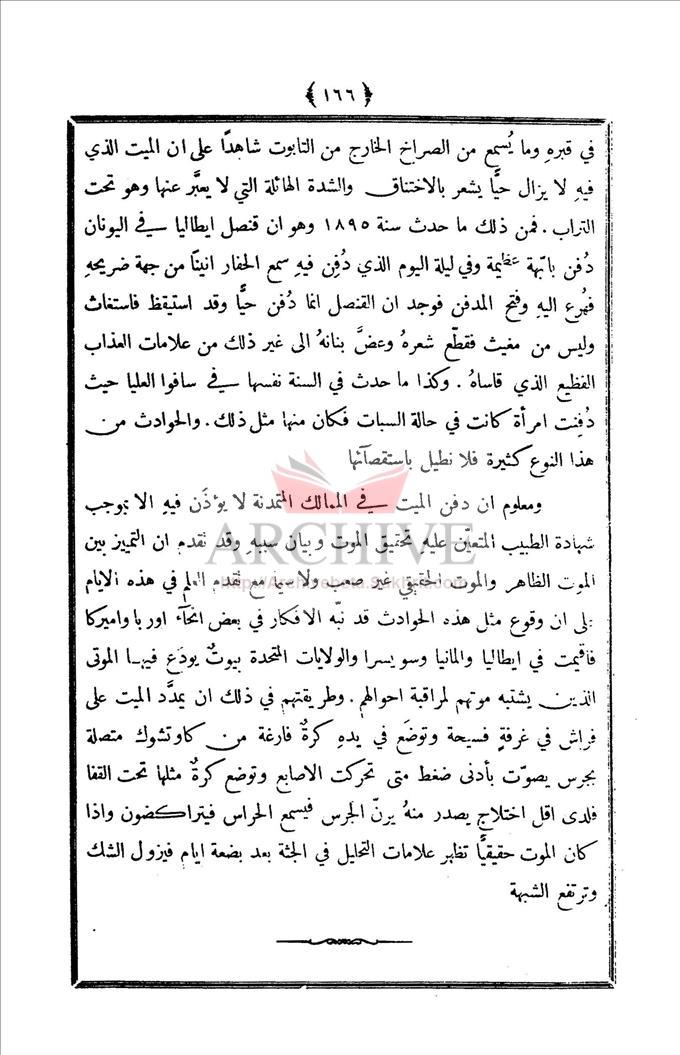 ﴿ ١٦٦ ﴾
في قبرهِ وما يُسمع من الصراخ الخارج من التابوت شاهدًا على ان الميت الذي
فيهِ لا يزال حيًّا يشعر بالاختناق والشدة الهائلة التي لا يعبَّر عنها وهو تحت
التراب . فمن ذلك ما حدث سنة ١٨٩٥ وهو ان قنصل ايطاليا في اليونان
دُفن بابّهة عظيمة وفي ليلة اليوم الذي دُفن فيهِ سمع الحفار انينًا من جهة ضريحهِ
فهُرع اليهِ وفتح المدفن فوجد ان القنصل انما دُفن حيًّا وقد استيقظ فاستغاث
وليس من مغيث فقطّع شعرهُ وعضَّ بنانهُ الى غير ذلك من علامات العذاب
الفظيع الذي قاساهُ . وكذا ما حدث في السنة نفسها في سافوا العليا حيث
دُفنت امرأة كانت في حالة السبات فكان منها مثل ذلك . والحوادث من
هذا النوع كثيرة فلا نطيل باستقصآئها
ومعلوم ان دفن الميت في الممالك المتمدنة لا يؤذَن فيهِ الا بموجب
شهادة الطبيب المتعيّن عليهِ تحقيق الموت وبيان سببهِ وقد نقدم ان التمييز بين
الموت الظاهر والموت الحقيقي غير صعب ولا سيما مع نقدم العلم في هذه الايام
على ان وقوع مثل هذه الحوادث قد نبّه الافكار في بعض انحآء اوربا واميركا
فاقيمت في ايطاليا والمانيا وسويسرا والولايات المتحدة بيوتٌ يودَع فيها الموتى
الذين يشتبه موتهم لمراقبة احوالهم . وطريقتهم في ذلك ان يمدَّد الميت على
فراش في غرفةٍ فسيحة وتوضَع في يدهِ كرةٌ فارغة من كاوتشوك متصلة
بجرس يصوّت بأدنى ضغط متى تحركت الاصابع وتوضع كرةٌ مثلها تحت القفا
فلدى اقل اختلاجٍ يصدر منهُ يرنّ الجرس فيسمع الحراس فيتراكضون واذا
كان الموت حقيقيًّا تظهر علامات التحليل في الجثة بعد بضعة ايام فيزول الشك
وترتفع الشبهة
ARCHIVE